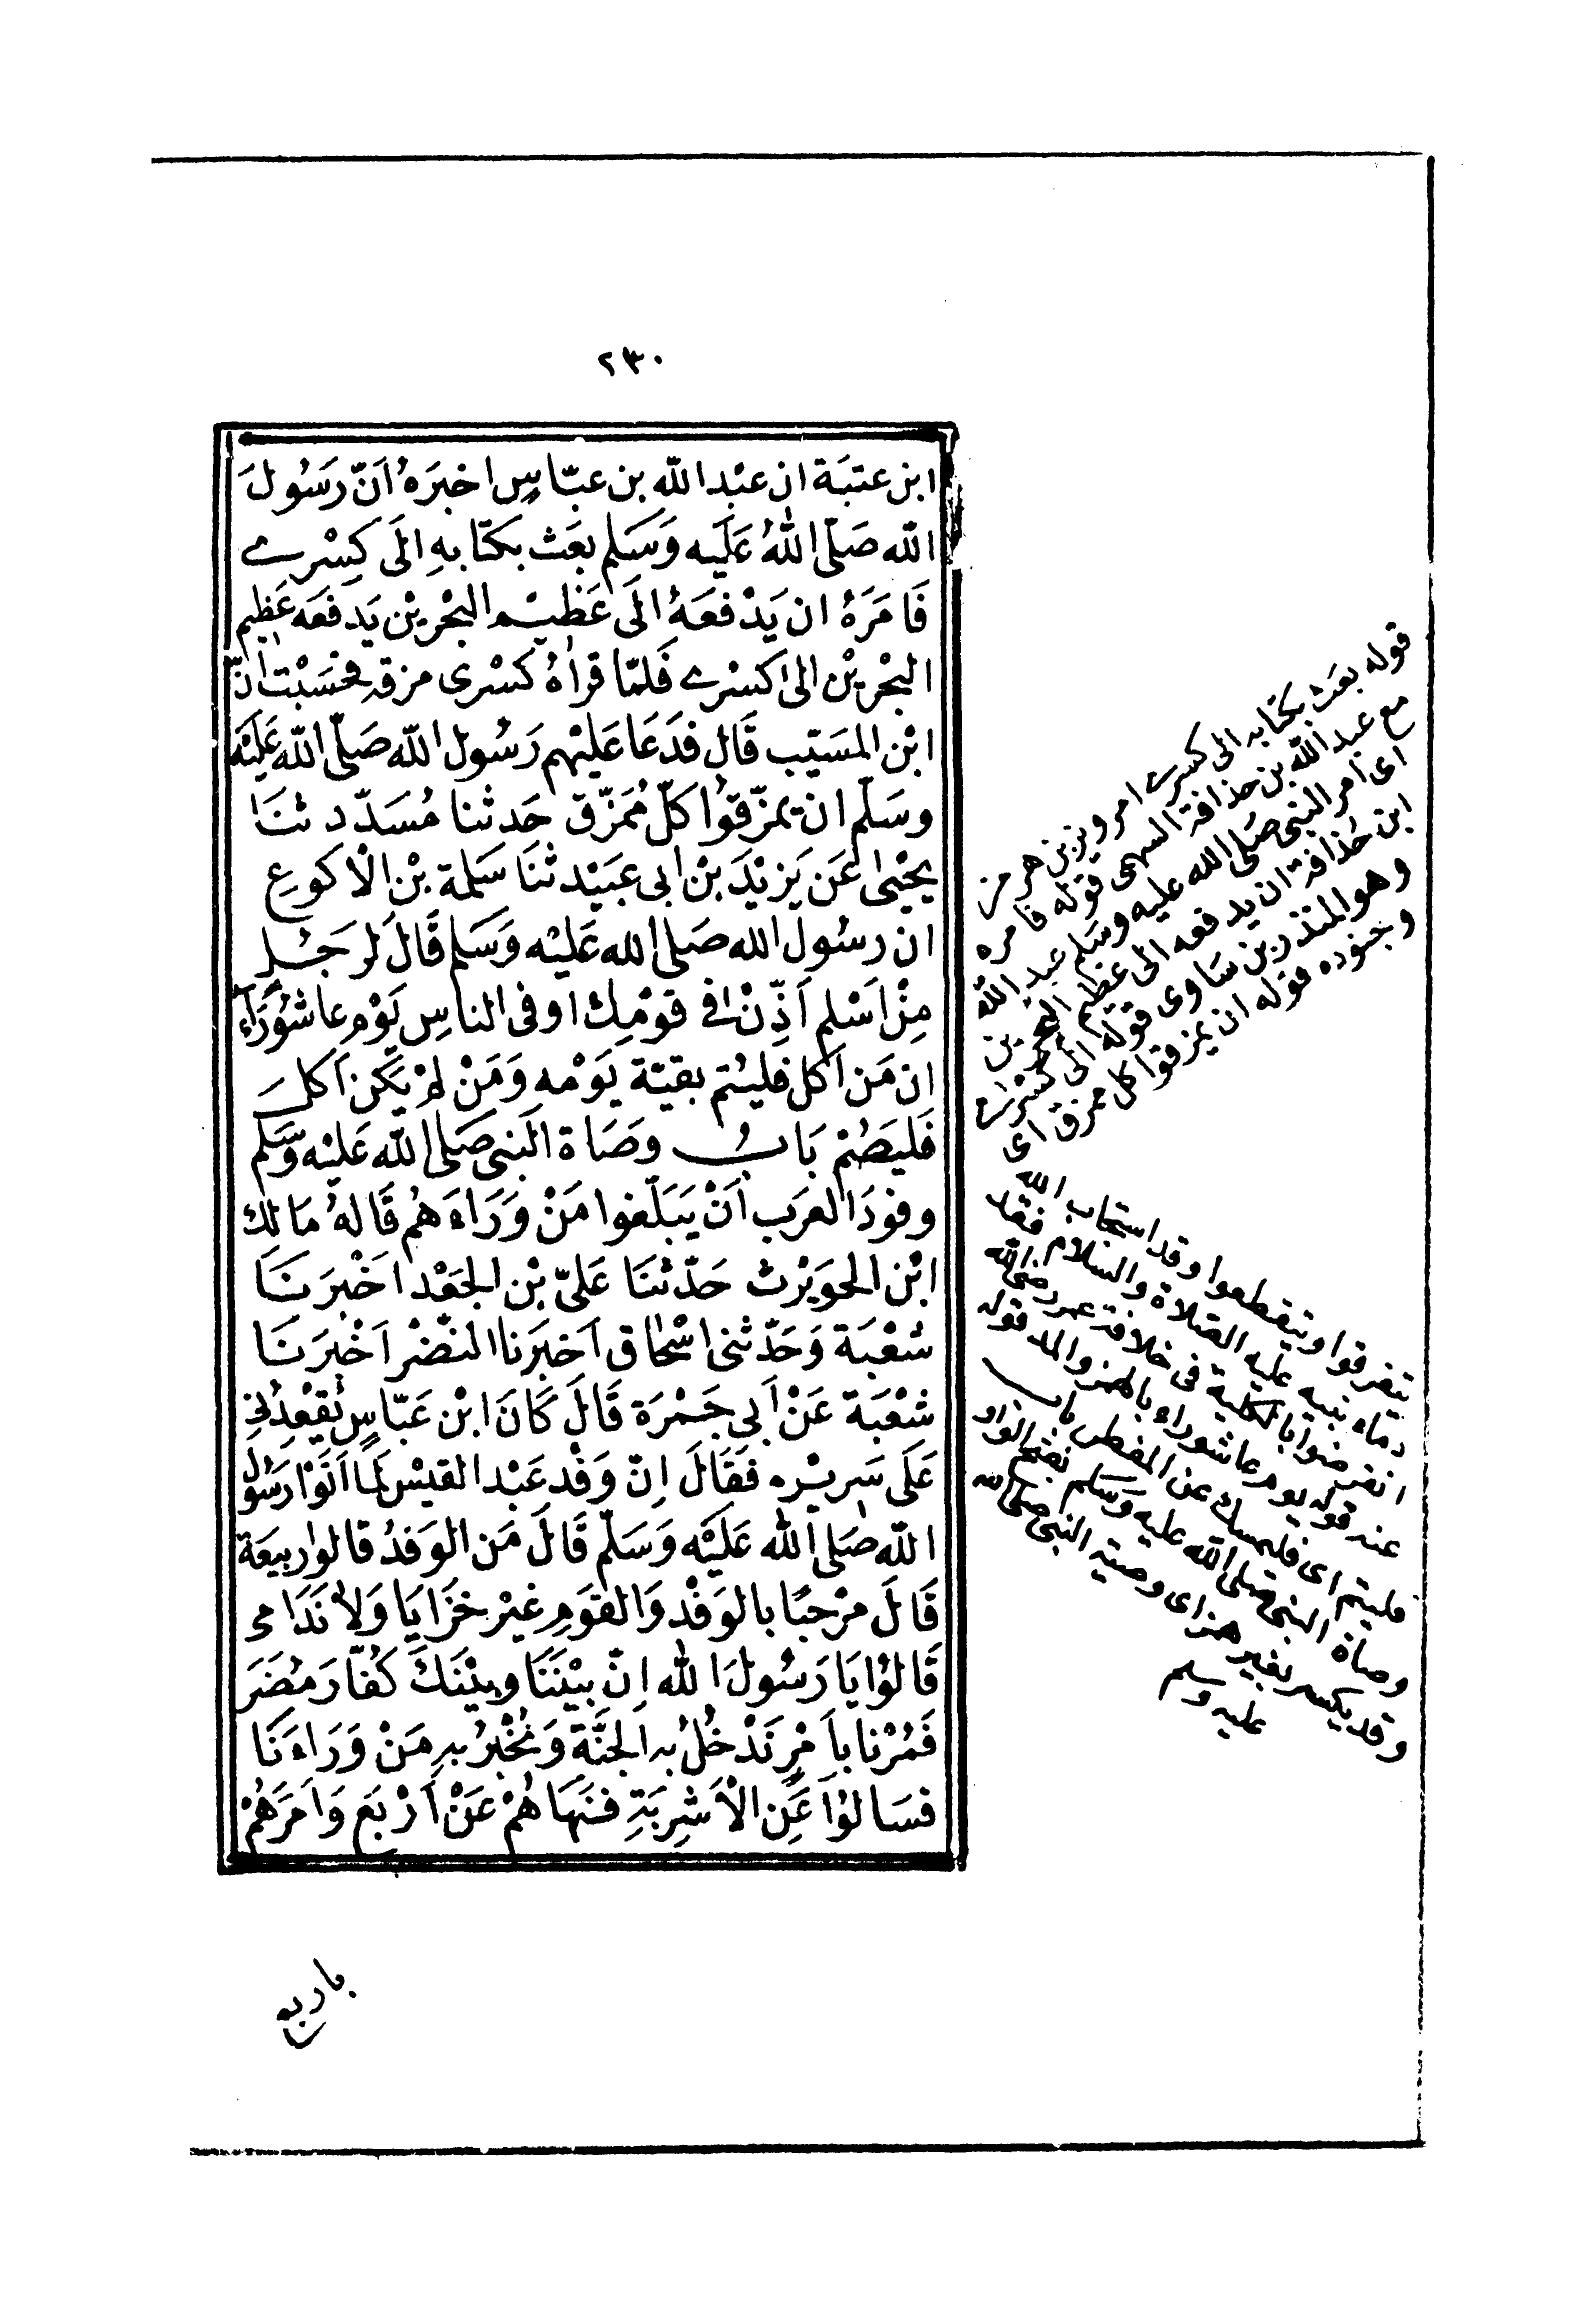 ٢٣٠
ابن عتبَة ان عبْد الله بن عبّاسٍ اخبَرَهُ اَنّ رَسُولَ
الله صَلّى اللهُ عَلَيه وَسَلم بعَث بكتابهِ الَى كِسْرے
فَامَرَهُ ان يَدْفعَهُ الَى عَظيْم البحْريْن يَدفعَه عَظيم
البحْريْن الىٰ كسْرے فَلمّا قراٰهُ كسْرى مزقه فحسَبْت اَنّ
ابْن المسَيّب قَال فدَعَا عَليْهم رَسُول الله صَلّى الله عَليْه
وسَلّم ان يمزّقوُا كلّ مُمَزّق حَدثنا مُسَدّد ثنَا
يحْيىٰ عَن يَزيْدَ بْن ابى عبَيْد ثنَا سَلمة بْن الْاكوعِ
ان رسُول الله صَلى الله عَليْه وَسَلم قَالَ لرَجُلٍ
مِنْ اَسْلم اَذّنْ فى قوْمِك او فى الناسِ يَوْم عاشوُرَآء
ان مَن اَكل فليُتم بقيّة يَوْمه وَمَنْ لمْ يَكن اَكلَ
فَليَصُمْ بَابُ وصَاة النبى صَلى الله عَليْه وَسَّلم
وفودَ العرَب اَنْ يَبَلّغوا مَنْ وَرَاءَهُم قَالهُ مَالك
ابْن الحوَيْرث حَدّثنَا عَلىّ بْن الجَعْد اخْبَرَنَا
شعْبَة وَحَدّثنى اسْحٰاق اَخبَرنا النضْر اَخْبَرَنَا
شعْبَة عَنْ اَبى جَمْرَة قَالَ كَانَ ابْن عَبّاسٍ يُقْعِدُنى
عَلَى سَريْره فَقَالَ اِنّ وَفْد عَبْد القيْس لمّا اَتَوْا رَسُول
الله صَلى الله عَليْه وَسَلّم قَالَ مَن الوَفدُ قالوا ربيعَة
قَالَ مرْحبًا بالوَفْد وَالقوَمِ غيْرَ خزَايَا وَلَا نَدَامى
قَالوُا يَا رَسُولَ الله اِنّ بيْنَنَا وبيْنَكَ كفّارَ مُضَرَ
فَمُرْنا باَمْرٍ نَدْخُلُ به الجنَّة وَنُخْبرُ به مَنْ وَرَاءَنَا
فسَالوُا عَن الْاَشرِبَةِ فنَهَاهُمْ عَنْ اَرْبَع وَامَرَهُمْ
قوله بعَث بكتابه الى كسرے ابرويز بن هرمز
مع عبد الله بن حذافة السهمى قوله فامره
اى امر النبى صلى الله عليه وسلم عبد الله
ابن حذافة ان يدفعه الى عظيم البحرين
وهو المنذر بن ساوى قوله الى كسرے
وجنوده قوله ان يمزقوا كل ممزق اى
يتفرقوا ويتقطعوا وقد استجاب الله
دعاء نبيه عليه الصلاة والسلام فقد
انقرضوا بالكلية فى خلافة عمر رضى الله
عنه قوله يوم عاشوراء بالهمز والمد قوله
فليتم اى فليمسك عن المفطر باب
وصاة النبى صلى الله عليه وسلم بفتح الواو
وقد يكسر بغير همز اى وصية النبى صلى الله
عليه وسلم
باربع